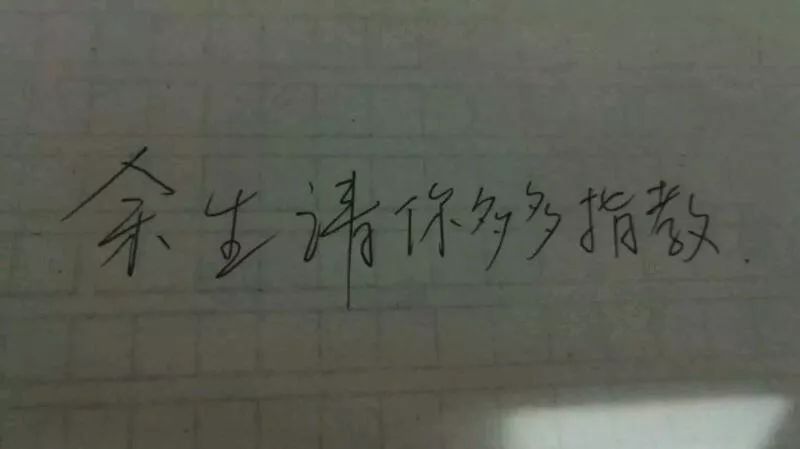 余生请你多多指教.